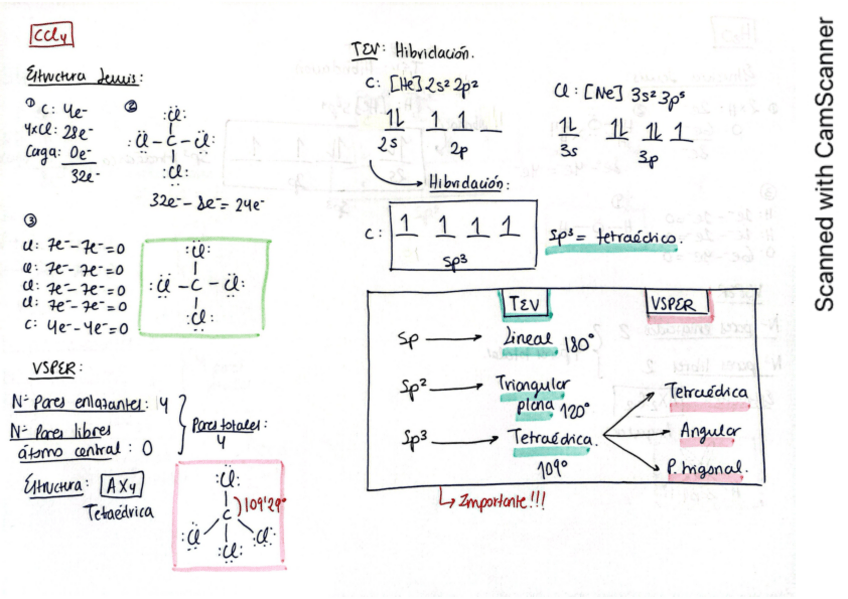 CCl4
Estructura Lewis:
① C: 4e-
4xCl: 28e-
Carga: 0e-
32e-
②
:C̈l:
:C̈l-C-C̈l:
:C̈l:
32e- - 8e- = 24e-
③
Cl: 7e- - 7e- = 0
Cl: 7e- - 7e- = 0
Cl: 7e- - 7e- = 0
Cl: 7e- - 7e- = 0
C: 4e- - 4e- = 0
:C̈l:
:C̈l - C - C̈l:
:C̈l:
VSPER:
Nº Pares enlazantes: 4
Nº Pares libres
átomo central: 0
Pares totales:
4
Estructura: AX4
Tetraédrica
:C̈l:
C )109'29º
:C̈l :C̈l: C̈l:
TEV: Hibridación.
C: [He] 2s² 2p²
1L 1 1
2s 2p
Hibridación:
C: 1 1 1 1
sp³
sp³ = tetraédrico.
Cl: [Ne] 3s² 3p⁵
1L 1L 1L 1
3s 3p
TEV VSPER
Sp → Lineal 180º
Sp² → Triangular
plana 120º
Sp³ → Tetraédrica.
109º
Tetraédrica
Angular
P. trigonal.
↳ Importante!!!
Scanned with CamScanner